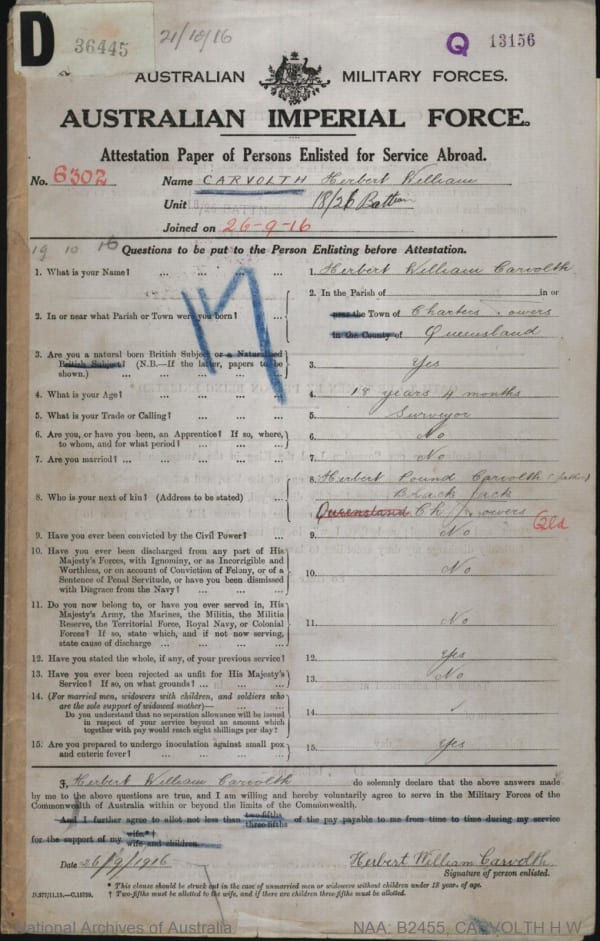 D 36445 21/10/16 Q 13156
AUSTRALIAN MILITARY FORCES.
AUSTRALIAN IMPERIAL FORCE.
Attestation Paper of Persons Enlisted for Service Abroad.
No. 6302 Name CARVOLTH Herbert William
Unit 18/26 Battion
Joined on 26-9-16
19 10 16 Questions to be put to the Person Enlisting before Attestation.
1. What is your Name? ... ... ... ... 1. Herbert William Carvolth
2. In or near what Parish or Town were you born? ... 2. In the Parish of in or
near the Town of Charters Towers
in the County of Queensland
3. Are you a natural born British Subject or a Naturalised
British Subject? (N.B.—If the latter, papers to be
shown.) ... ... ... ... 3. Yes
4. What is your Age? ... ... ... ... 4. 18 years 4 months
5. What is your Trade or Calling? ... ... ... 5. Surveyor
6. Are you, or have you been, an Apprentice? If so, where,
to whom, and for what period? ... ... ... 6. No
7. Are you married? ... ... ... ... ... 7. No
8. Who is your next of kin? (Address to be stated) ... 8. Herbert Pound Carvolth (father)
Black Jack
Queensland Ch. Towers Qld
9. Have you ever been convicted by the Civil Power? ... 9. No
10. Have you ever been discharged from any part of His
Majesty's Forces, with Ignominy, or as Incorrigible and
Worthless, or on account of Conviction of Felony, or of a
Sentence of Penal Servitude, or have you been dismissed
with Disgrace from the Navy? ... ... ... 10. No
11. Do you now belong to, or have you ever served in, His
Majesty's Army, the Marines, the Militia, the Militia
Reserve, the Territorial Force, Royal Navy, or Colonial
Forces? If so, state which, and if not now serving,
state cause of discharge ... ... ... ... 11. No
12. Have you stated the whole, if any, of your previous service? 12. Yes
13. Have you ever been rejected as unfit for His Majesty's
Service? If so, on what grounds? ... ... ... 13. No
14. (For married men, widowers with children, and soldiers who
are the sole support of widowed mother)— ... ...
Do you understand that no separation allowance will be issued
in respect of your service beyond an amount which
together with pay would reach eight shillings per day? 14.
15. Are you prepared to undergo inoculation against small pox
and enteric fever? ... ... ... ... 15. Yes
I, Herbert William Carvolth do solemnly declare that the above answers made
by me to the above questions are true, and I am willing and hereby voluntarily agree to serve in the Military Forces of the
Commonwealth of Australia within or beyond the limits of the Commonwealth.
And I further agree to allot not less than two-fifths three-fifths of the pay payable to me from time to time during my service
for the support of my wife*† wife and children.
Date 26/9/1916 Herbert William Carvolth
Signature of person enlisted.
* This clause should be struck out in the case of unmarried men or widowers without children under 18 year. of age.
† Two-fifths must be allotted to the wife, and if there are children three-fifths must be allotted.
D.577/11.15.—C.15729.
National Archives of Australia NAA: B2455, CARVOLTH H W